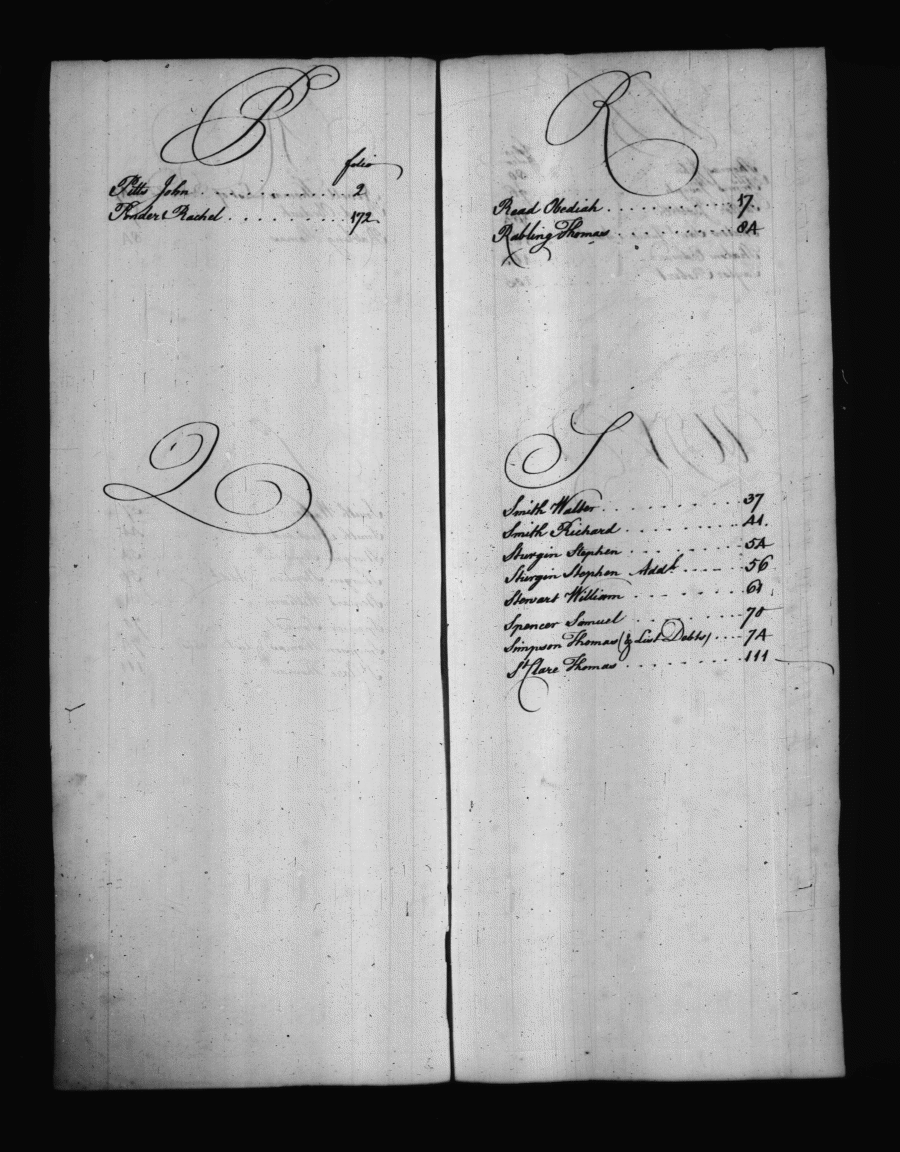 P
folio
Pitts John . . . . . . . . . . 2
Ponder Rachel . . . . . . . . . . 172
Q
R
Read Obediah . . . . . . . . . . 17
Rabling Thomas . . . . . . . . . . 84
S
Smith Walter . . . . . . . . . . 37
Smith Richard . . . . . . . . . . 44
Sturgin Stephen . . . . . . . . . . 54
Sturgin Stephen Addl. . . . . . . 56
Stewart William . . . . . . . . . . 61
Spencer Samuel . . . . . . . . . . 70
Simpson Thomas (& List Debts) . . . 74
St. Clare Thomas . . . . . . . . . . 111